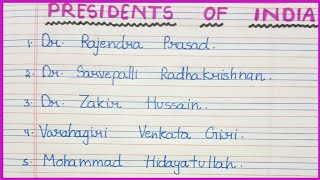 PRESIDENTS OF INDIA
1. Dr. Rajendra Prasad.
2. Dr. Sarvepalli Radhakrishnan.
3. Dr. Zakir Hussain.
4. Varahagiri Venkata Giri.
5. Mohammad Hidayatullah.